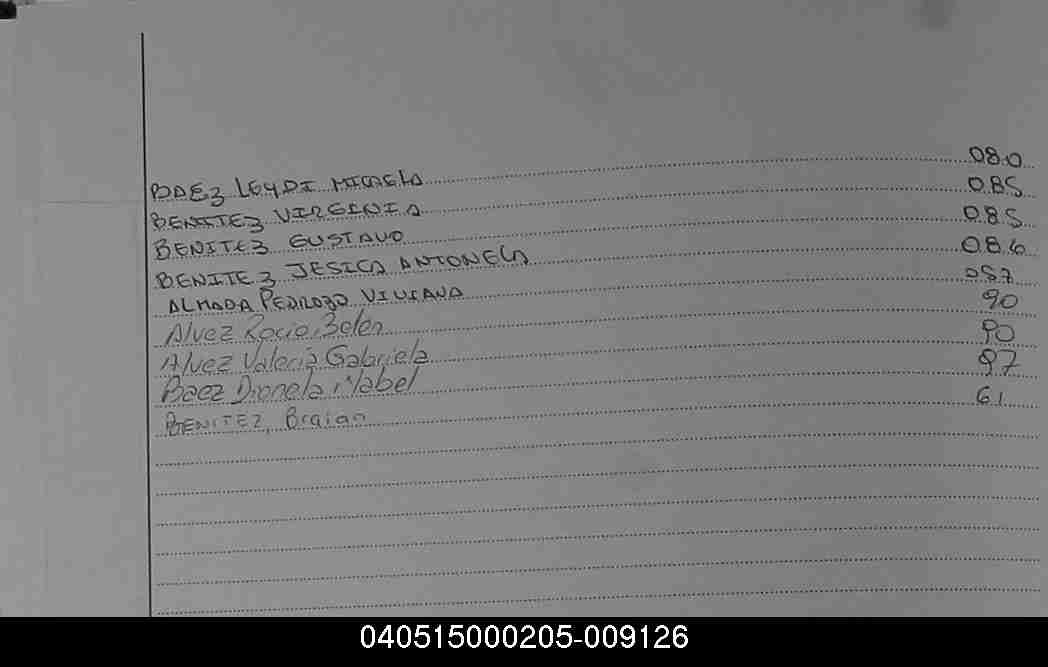 BAEZ LEYDI MICAELA 080
BENITEZ VIRGINIA 085
BENITEZ GUSTAVO 085
BENITEZ JESICA ANTONELA 086
ALMADA PEDROZO VIVIANA 087
Alvez Rocio Belen 90
Alvez Valeria Gabriela 90
Baez Dionela Mabel 97
BENITEZ, Braian 61
040515000205-009126